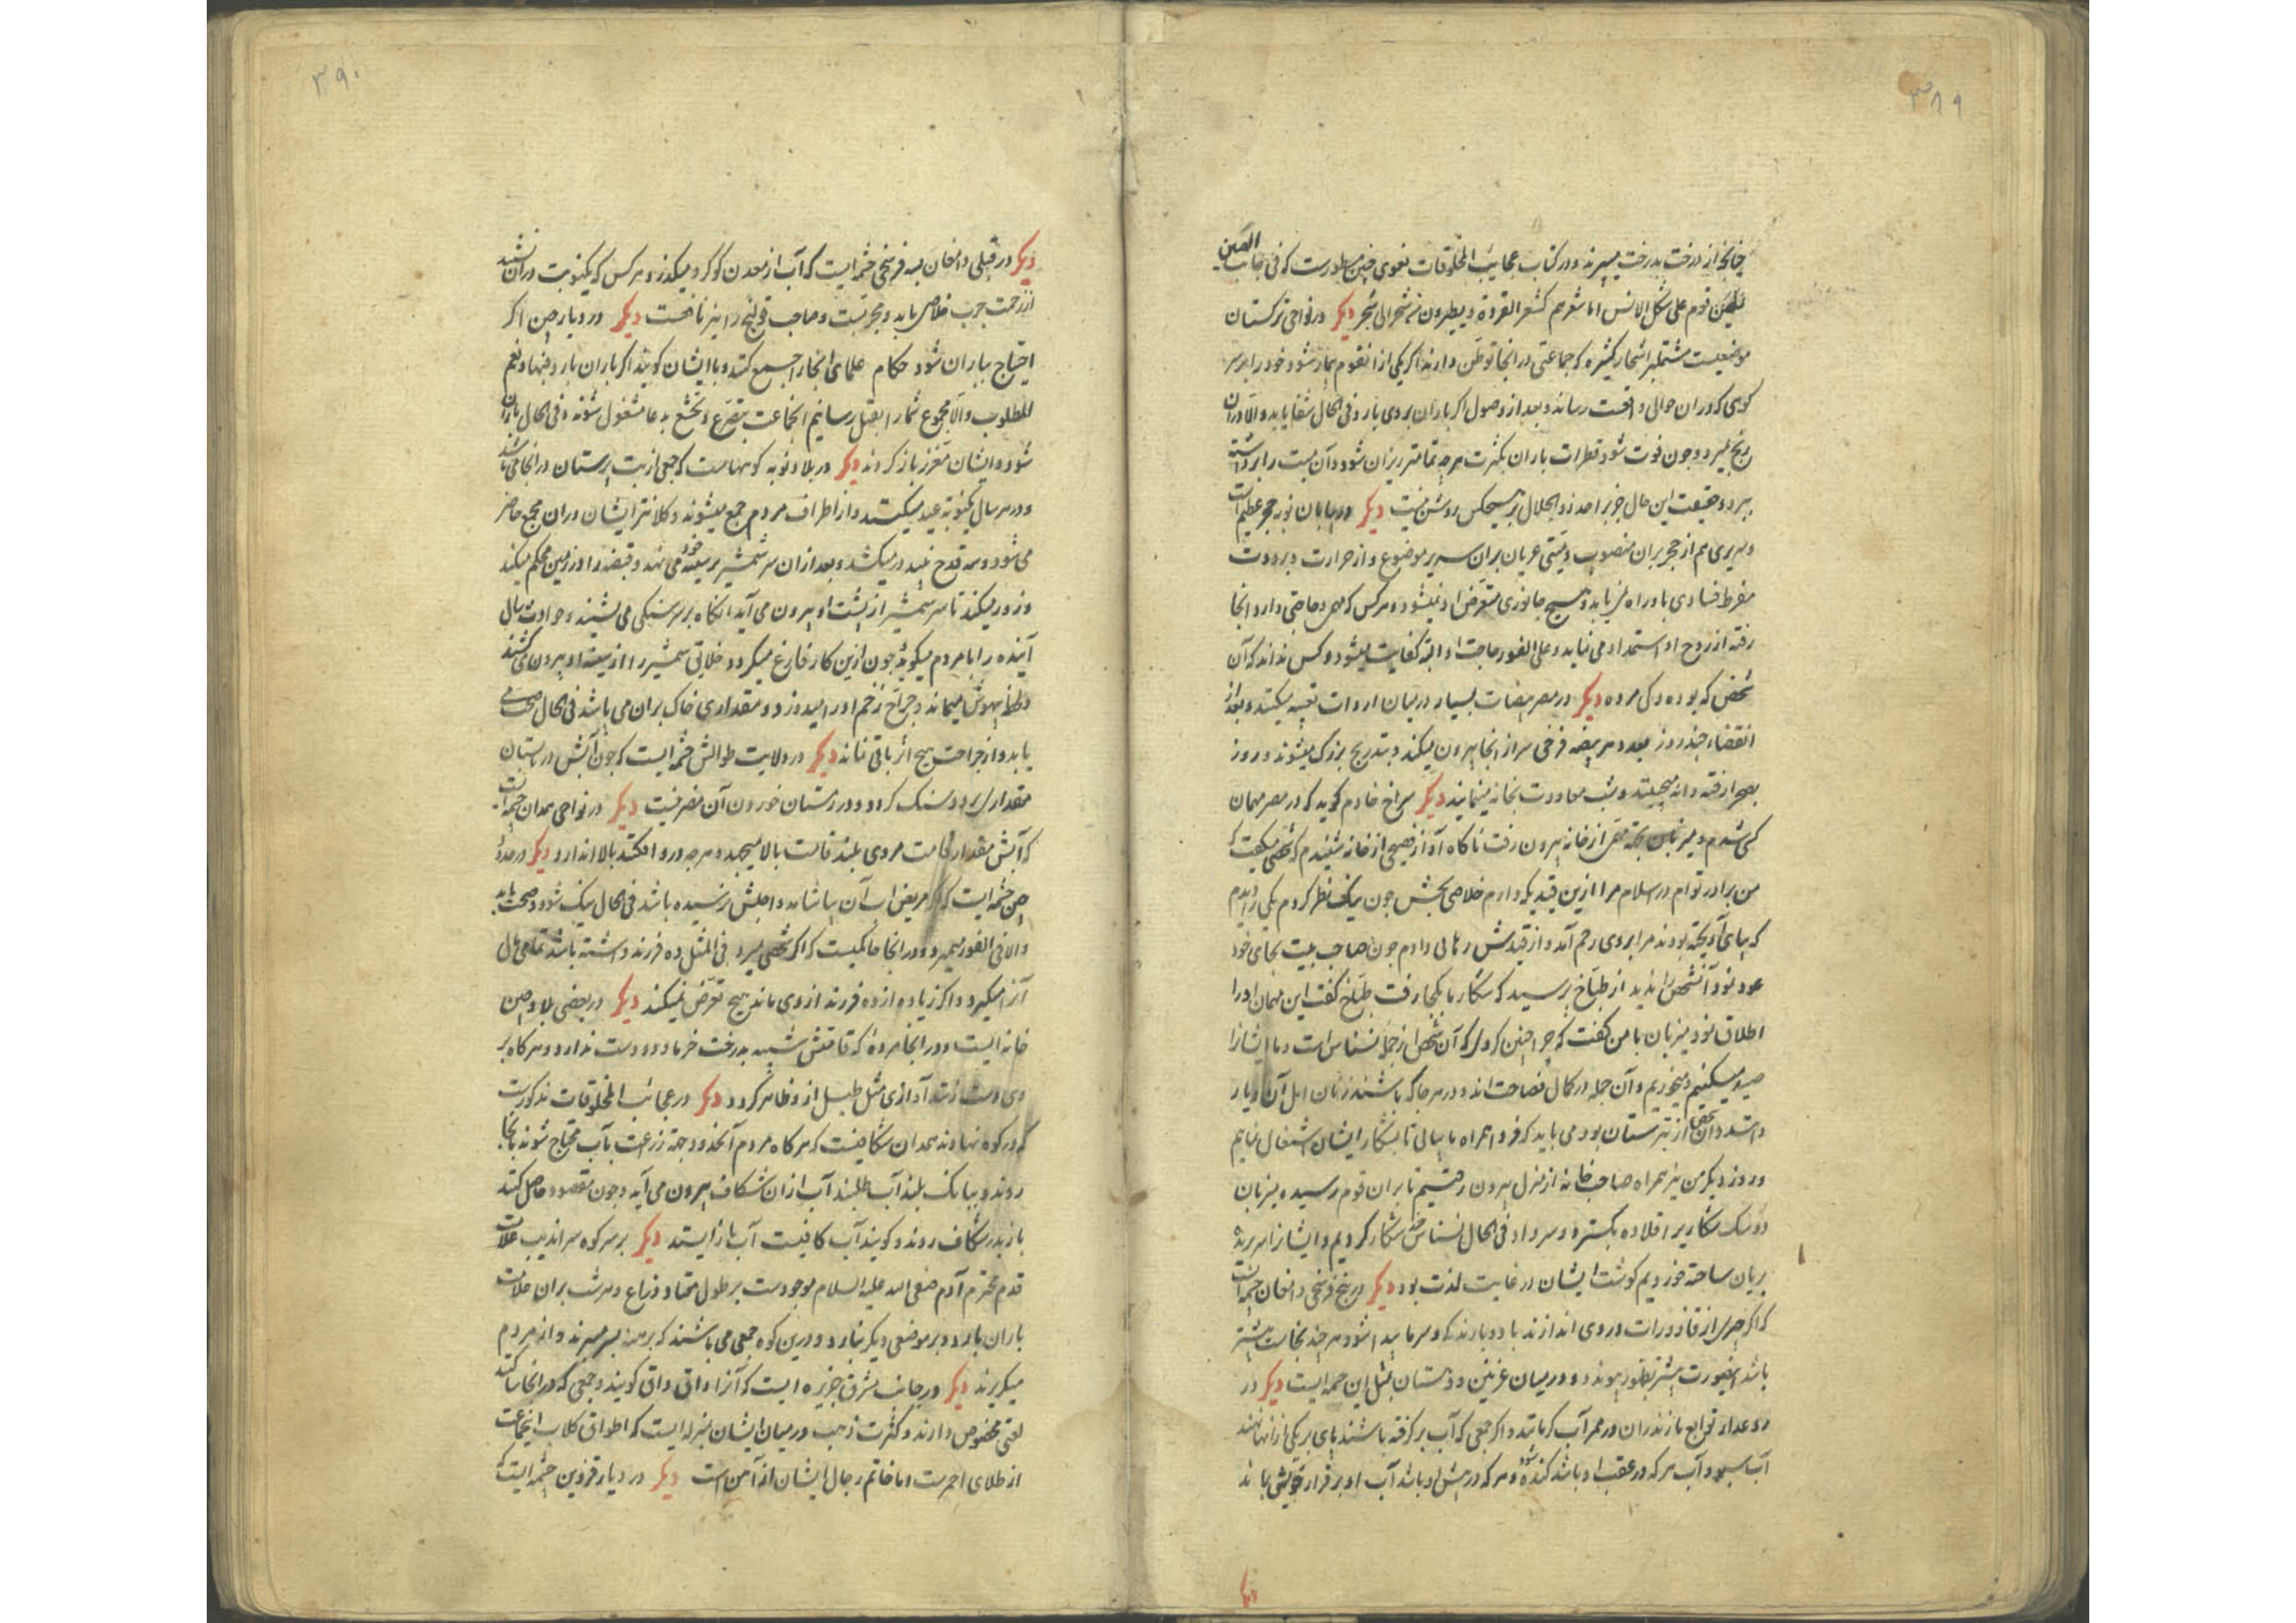 ۳۸۹
چنانچه از درخت بدرخت میپرند و در کتاب عجایب المخلوقات نحوی چنین مسطورست که فی جانب الصین
قوم علی شکل الانس اما شعرهم کشعر القرودة و یطیرون من شجر الی شجر دیکر در نواحی ترکستان
موضعیست مشتمل بر اشجار کثیره که جماعتی در انجا توطن دارند اکر یکی از انقوم بیمار شود خود را بر سر
کوهی که در ان حوالی واقعست رساند و بعد از وصول اکر باران بر وی بارد فی الحال شفا یابد و الا در ان
رنج بمیرد و چون فوت شود قطرات باران بکثرت هر چه تمامتر ریزان شود و آن میت را برداشته
ببرد و حقیقت این حال جز بر احد ذو الجلال بر هیچکس روشن نیست دیکر در بیابان نوبه حجر عظیم است
و سریری هم از حجر بران منصوب و میتی عریان بران سریر موضوع و از حرارت و برودت
مفرط فسادی باو راه نمی یابد و هیچ جانوری متعرض او نمیشود و هر کس که مهمی و حاجتی دارد انجا
رفته از روح او استمداد می نماید و علی الفور حاجت او البته کفایت میشود و کس نداند که آن
شخص که بوده و کی مرده دیکر در مصر بیضات بسیار در میان ادوات تعبیه میکنند و بعد از
انقضاء چند روز معدود هر بیضه فرخی سر از انجا بیرون میکند و بتدریج بزرک میشوند و روز
بصحرا رفته دانه میچینند و شب معاودت بخانه مینمایند دیکر سراج خادم کوید که در مصر مهمان
کسی شدم و میزبان بجهة مهمی از خانه بیرون رفت ناکاه آواز فصیحی از خانه شنیدم که شخصی میکفت که
من برادر توام در اسلام مرا ازین قید که دارم خلاصی بخش چون نیک نظر کردم یکی را دیدم
که بپای آویخته بودند مرا بر وی رحم آمد و از قیدش رهائی دادم چون صاحب بیت بجای خود
عود نمود آنشخص را ندید از طباخ پرسید که شکار ما بکجا رفت طباخ کفت این مهمان او را
اطلاق نمود میزبان با من کفت که چرا چنین کردی که آن شخص از جمله نسناس است و ما ایشانرا
صید میکنیم و میخوریم و آن جمله در کمال فصاحت اند و در هر جا که باشند زبان اهل آن دیار
دانند و آن شخص از تبرستان بود می باید که فردا همراه ما بیائی تا بشکار ایشان اشتغال نمایم
و روز دیکر من نیز همراه صاحب خانه از منزل بیرون رفتیم تا بران قوم رسیده میزبان
دو سک شکاری را قلاده بکسترد و سر داد فی الحال نسناس چند شکار کردیم و ایشانرا سر بریده
بریان ساخته خوردیم کوشت ایشان در غایت لذت بود دیکر در پنج فرسخی دامغان چشمه است
که اکر چیزی از قاذورات در وی اندازند باد و باران و سرما پیدا شود هر چند نجاست بیشتر
باشد اینصورت بیشتر بظهور پیوندد و در میان غزنین و هندوستان مثل این چشمه ایست دیکر در
توابع مازندران در ممر آب کرمانند و اکر جمعی که آب برکرفته باشند پای بر یکی از انها نهند
آب سبو و آب هر که در عقب او باشد کنده شود و هر که در پیش او باشد آب او بر قرار خویش بماند
دیکر
۳۹۰
دیکر در قبلی دامغان بسه فرسخی چشمه ایست که آب از معدن کوکرد میکذرد هر کس که یکنوبت در ان نشیند
از زحمت جرب خلاص یابد و مجربست و صاحب قولنج را نیز نافعست دیکر در دیار چین اکر
احتیاج بباران شود حکام علمای انجا را جمع کنند و با ایشان کویند اکر باران بارد فبها و نعم
المطلوب و الا مجموع شما را بقتل رسانیم انجماعت بتضرع و تخشع بدعا مشغول شوند و فی الحال باران
شود و ایشان معزز باز کردند دیکر در بلاد نوبه کوههاست که جمعی از بت پرستان در انجا می باشند
و در هر سال یکنوبة عید میکنند و از اطراف مردم جمع میشوند و کلانتر ایشان دران مجمع حاضر
می شود و سه قدح نبید در میکشد و بعد از ان سر شمشیر بر سینه خود می نهد و قبضه را در زمین محکم میکند
و زور میکند تا سر شمشیر از پشت او بیرون می آید انکاه بر سر سنکی می نشیند و حوادث سال
آینده را با مردم میکوید چون ازین کار فارغ میکردد خلایق شمشیر را از سینه او بیرون می کشند
و لحظه بیهوش میماند و جراح زخم او را میدوزد و مقداری خاک بران می پاشد فی الحال صحت می
یابد و از جراحتش هیچ اثر باقی نماند دیکر در ولایت طوالش چشمه ایست که چون آبش در تابستان
مقداری بر دو سنک کردد و در زمستان خوردن آن مضر نیست دیکر در نواحی همدان چشمه ایست
که آبش مقدار قامت مردی بلند قامت بالا میجهد و هر چه درو افکنند بالا اندازد دیکر در حدود
چین چشمه ایست که اکر مریض از آب آن بیاشامد و اجلش نرسیده باشد فی الحال نیک شود و صحت یابد
و الا فی الفور بمیرد و در انجا حاکمیست که اکر شخصی بمیرد فی المثل ده فرزند داشته باشد تمامی مال
آنرا میکیرد و اکر زیاده از ده فرزند از وی ماند هیچ تعرض نمیکند دیکر در بعضی بلاد چین
خانه ایست و در انجا مرده که قامتش شبیه بدرخت خرما و دو دست ندارد و هر کاه بر
وی دست زنند آوازی مثل طبل از و ظاهر کردد دیکر در عجائب المخلوقات مذکورست
که در کوه نهاوند همدان شکافیست که هر کاه مردم آنحدود بجهة زراعت بآب محتاج شوند بانجا
روند و ببانک بلند آب طلبند آب از ان شکاف بیرون می آید و چون مقصود حاصل کنند
باز بدر شکاف روند و کویند آب کافیست آب باز ایستد دیکر بر سر کوه سراندیب علامت
قدم محترم آدم صفی الله علیه السلام موجودست بر طول هفتاد ذراع و هر شب بران علامت
باران بارد و بر موضعی دیکر نبارد و درین کوه جمعی می باشند که برهنه بسر میبرند و از مردم
میکریزند دیکر در جانب مشرق جزیره ایست که آنرا واق واق کویند و جمعی که در انجا ساکنند
لغتی مخصوص دارند و کثرت ذهب در میان ایشان بمنزله ایست که اطواق کلاب انجماعت
از طلای احمرست اما خاتم رجال ایشان از آهن است دیکر در دیار قزوین چشمه ایست که